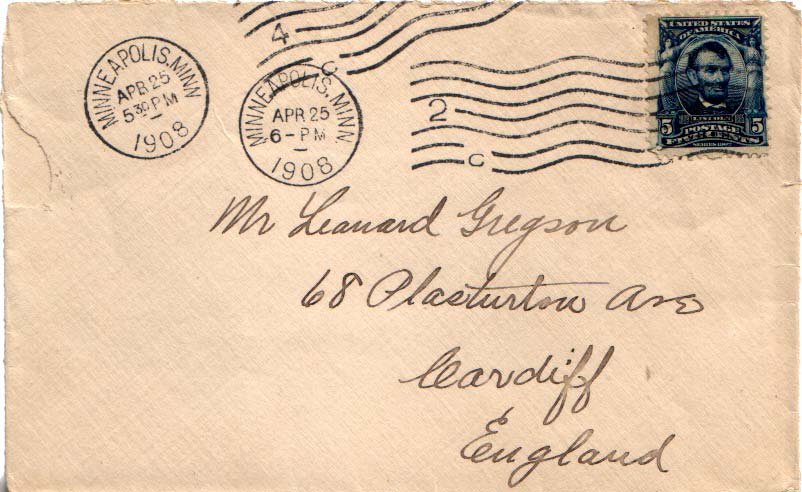 MINNEAPOLIS, MINN.
APR 25
5 30 P M
1908
MINNEAPOLIS, MINN.
APR 25
6 - P M
1908
4
C
2
C
UNITED STATES
OF AMERICA
LINCOLN
5 POSTAGE 5
FIVE CENTS
SERIES 1902
Mr Leanard Gregson
68 Plasturton Ave
Cardiff
England